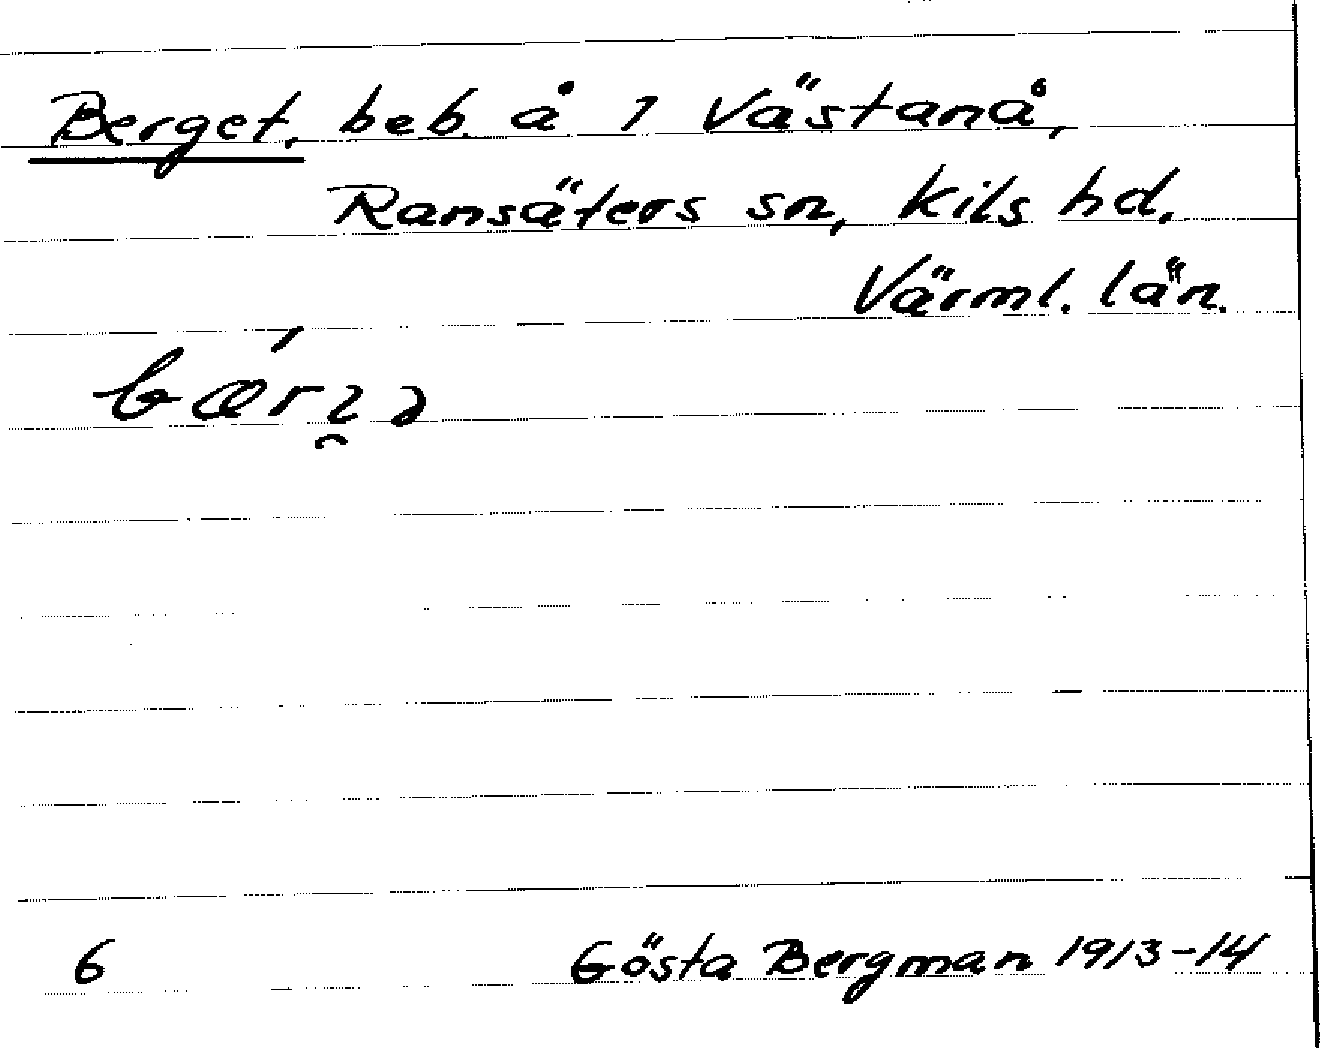 Berget, beb. å 1 Västanå,
Ransäters sn, Kils hd.
Värml. län.
bǽrɿ̯ə
6 Gösta Bergman 1913-14